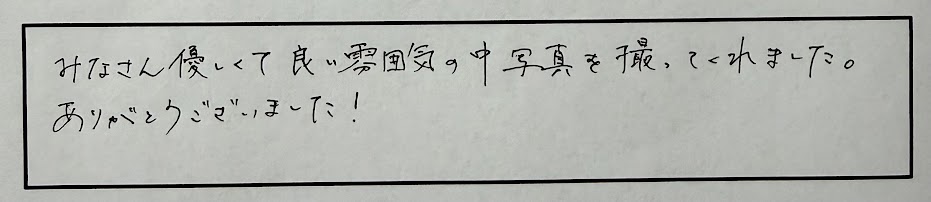 みなさん優しくて良い雰囲気の中写真を撮ってくれました。
ありがとうございました!